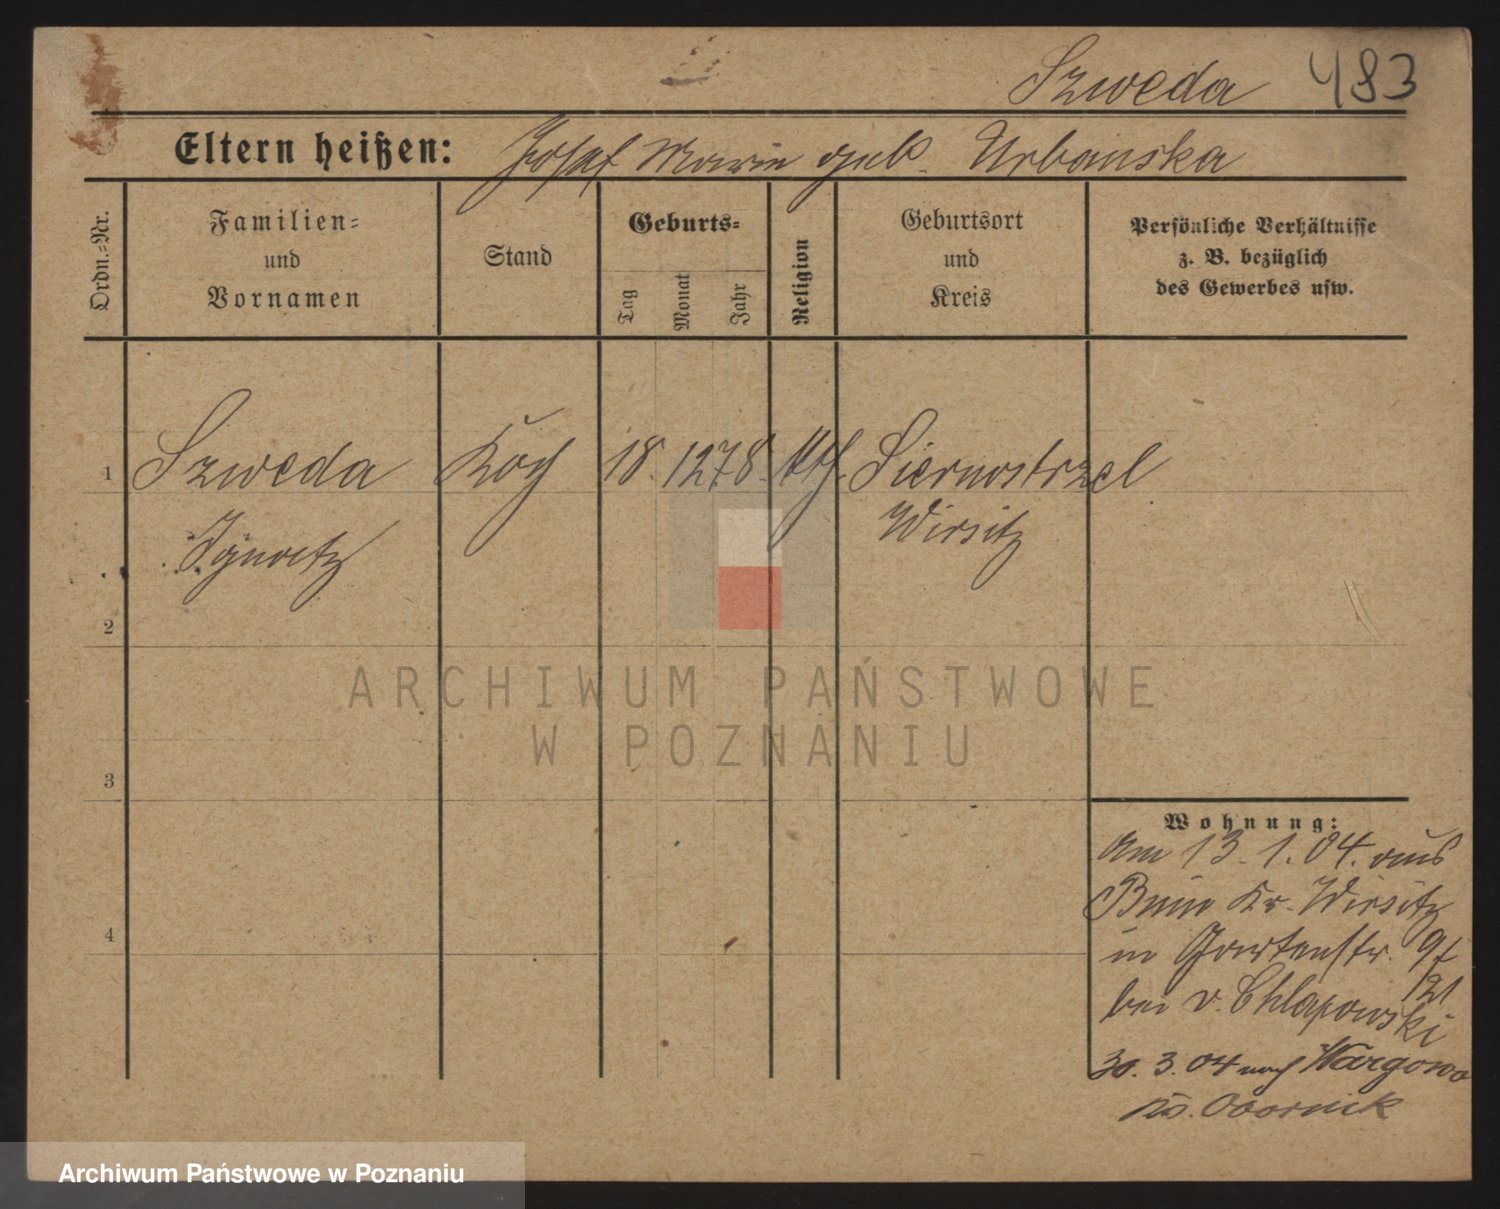 Szweda 483
Eltern heißen: Josef Marie geb. Urbanska
Ordn.=Nr.
Familien=
und
Vornamen
Stand
Geburts=
Tag
Monat
Jahr
Religion
Geburtsort
und
Kreis
Persönliche Verhältnisse
z. B. bezüglich
des Gewerbes usw.
1 Szweda Koch 18. 12 78. kth. Siernostrzel
Ignatz Wirsitz
2
3
4
Wohnung:
Am 13. 1. 04. aus
Bnin Kr. Wirsitz
in Gartenstr. 9
bei v. Chlapowski
30. 3. 04 nach Wargowo
Kr. Obornik
ARCHIWUM PAŃSTWOWE
W POZNANIU
Archiwum Państwowe w Poznaniu